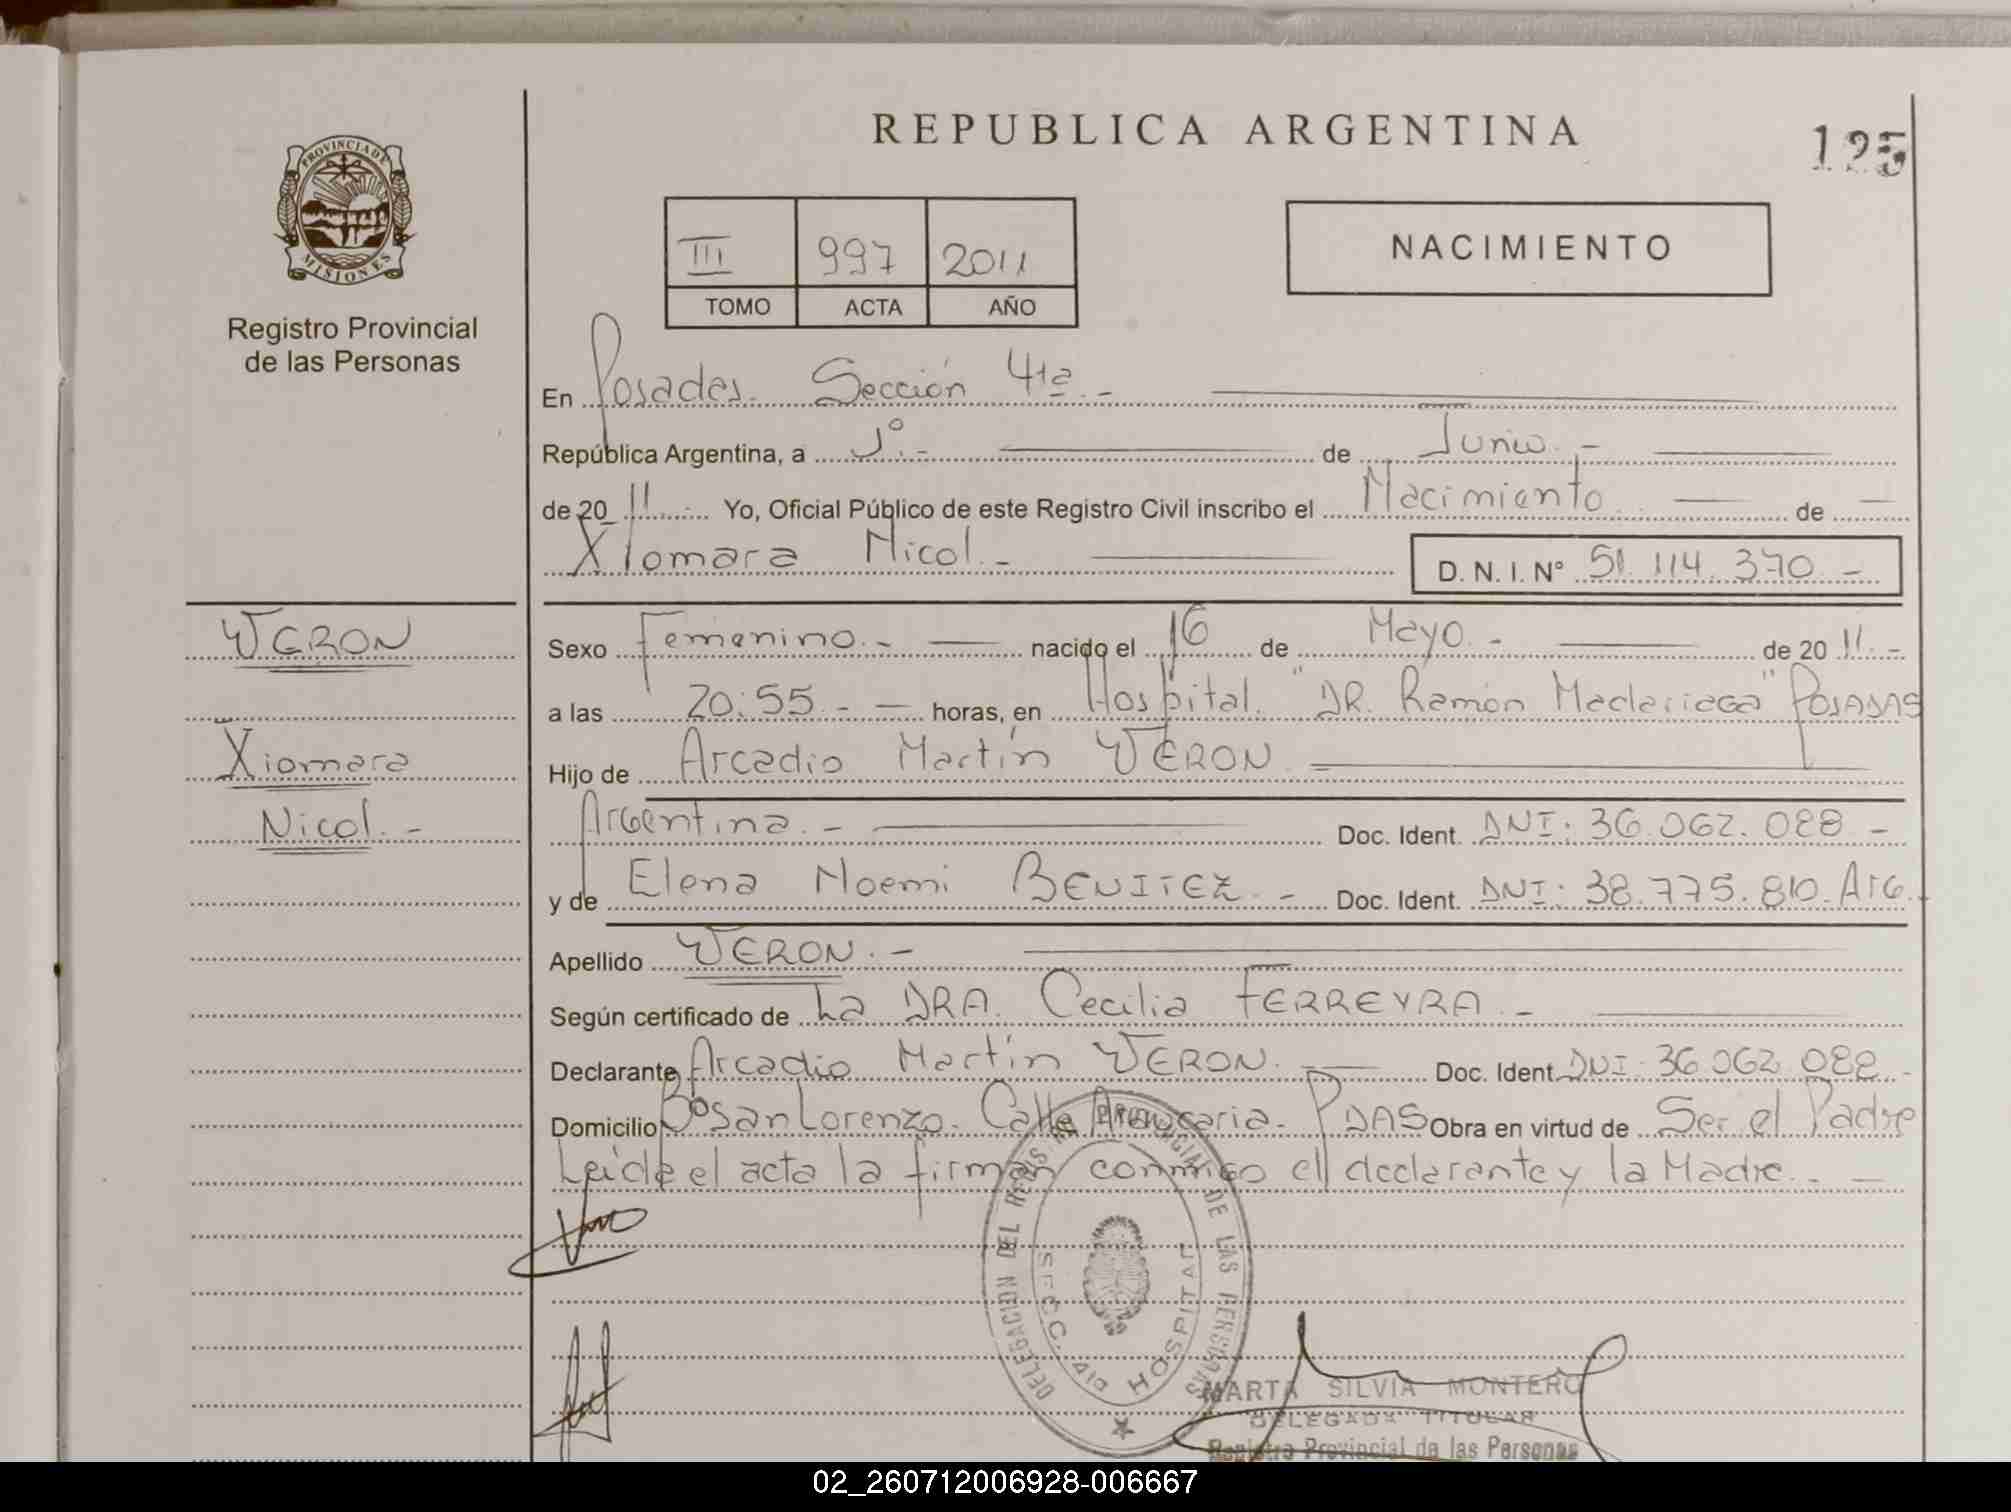 REPUBLICA ARGENTINA
125
PROVINCIA DE
MISIONES
Registro Provincial
de las Personas
III 997 2011
TOMO ACTA AÑO
NACIMIENTO
En Posadas. Sección 4ta.-
República Argentina, a 1º.- de Junio.-
de 2011.- Yo, Oficial Público de este Registro Civil inscribo el Nacimiento de
Xiomara Nicol.- D. N. I. N° 51.114.370.-
WERON
Xiomara
Nicol.-
Sexo Femenino.- nacido el 16 de Mayo.- de 2011.-
a las 20:55.- horas, en Hospital. "DR. Ramón Madariaga" POSADAS
Hijo de Arcadio Martín WERON
Argentina.- Doc. Ident. DNI: 36.062.088.-
y de Elena Noemi BENITEZ.- Doc. Ident. DNI: 38.775.810. Arg.
Apellido WERON.-
Según certificado de La DRA. Cecilia FERREYRA.-
Declarante Arcadio Martín WERON. Doc. Ident. DNI: 36.062.088.-
Domicilio Bº San Lorenzo. Calle Araucaria. PDAS Obra en virtud de Ser el Padre
Leída el acta la firman conmigo el declarante y la Madre.-
DELEGACION DEL REGISTRO PROVINCIAL DE LAS PERSONAS
SECC. 4ta HOSPITAL
MARTA SILVIA MONTERO
DELEGADA TITULAR
Registro Provincial de las Personas
02_260712006928-006667